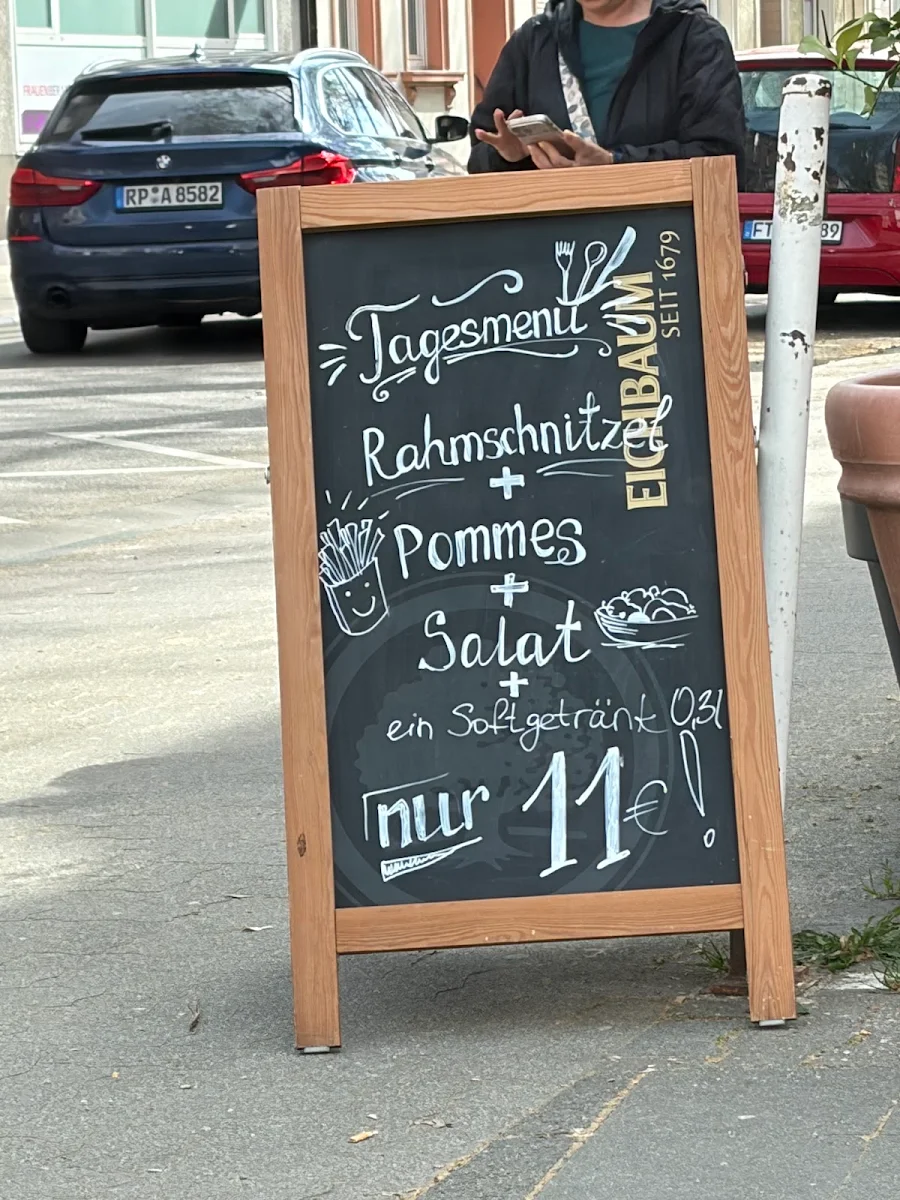 FRAUENBER
RP A 8582
FT 89
EICHBAUM
SEIT 1679
Tagesmenü
Rahmschnitzel
+
Pommes
+
Salat
+
ein Softgetränk 0,3l
nur 11€!